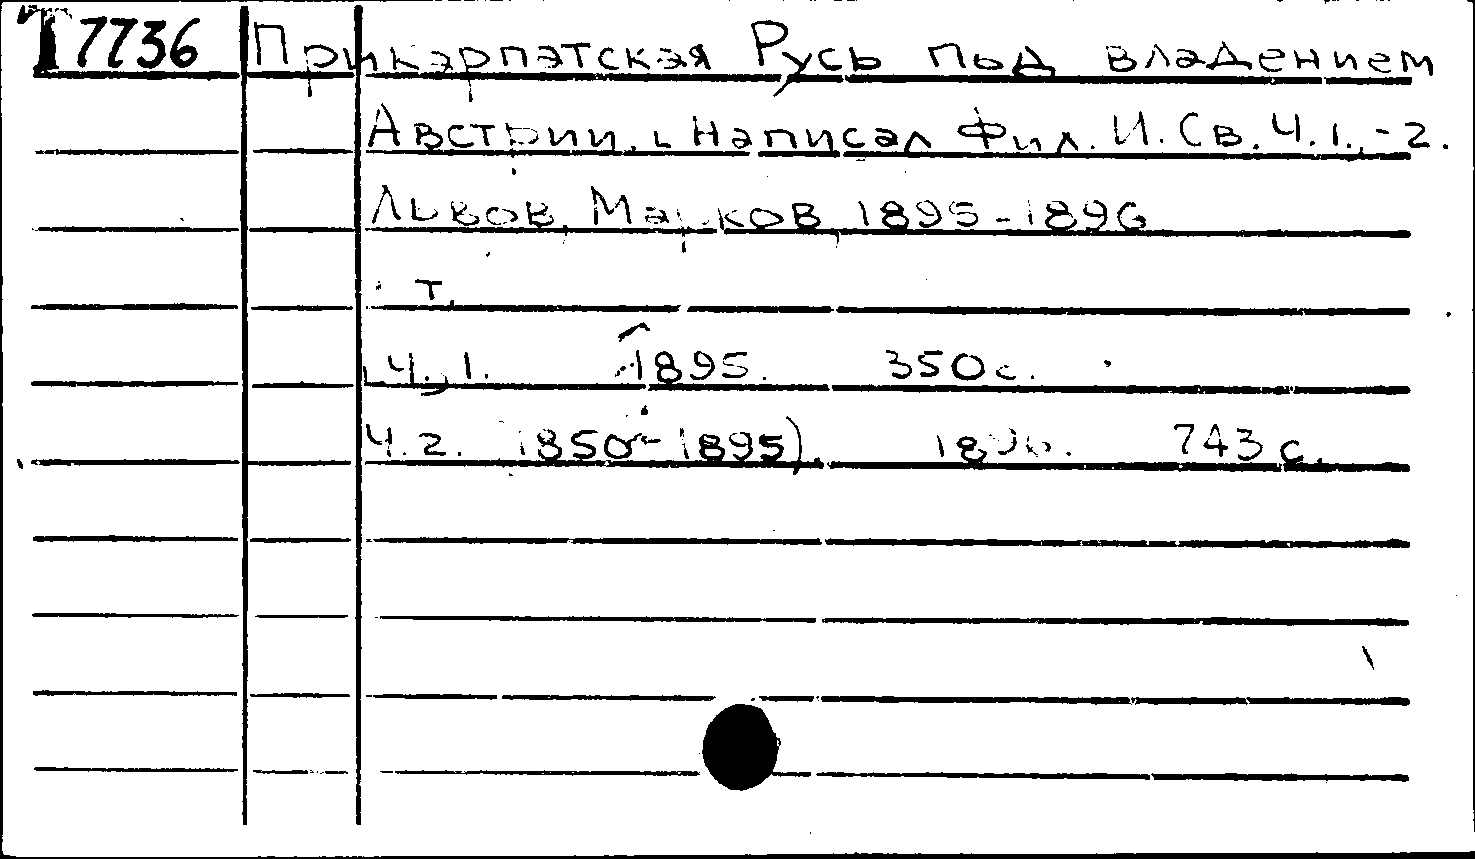 T 7736 Прикарпатская Русь под владением
Австрии. Написал Фил. И. Св. Ч. 1.-2.
Львов, Марков, 1895-1896
т.
Ч. 1. 1895. 350 с.
Ч. 2. 1850-1895). 1896. 743 с.